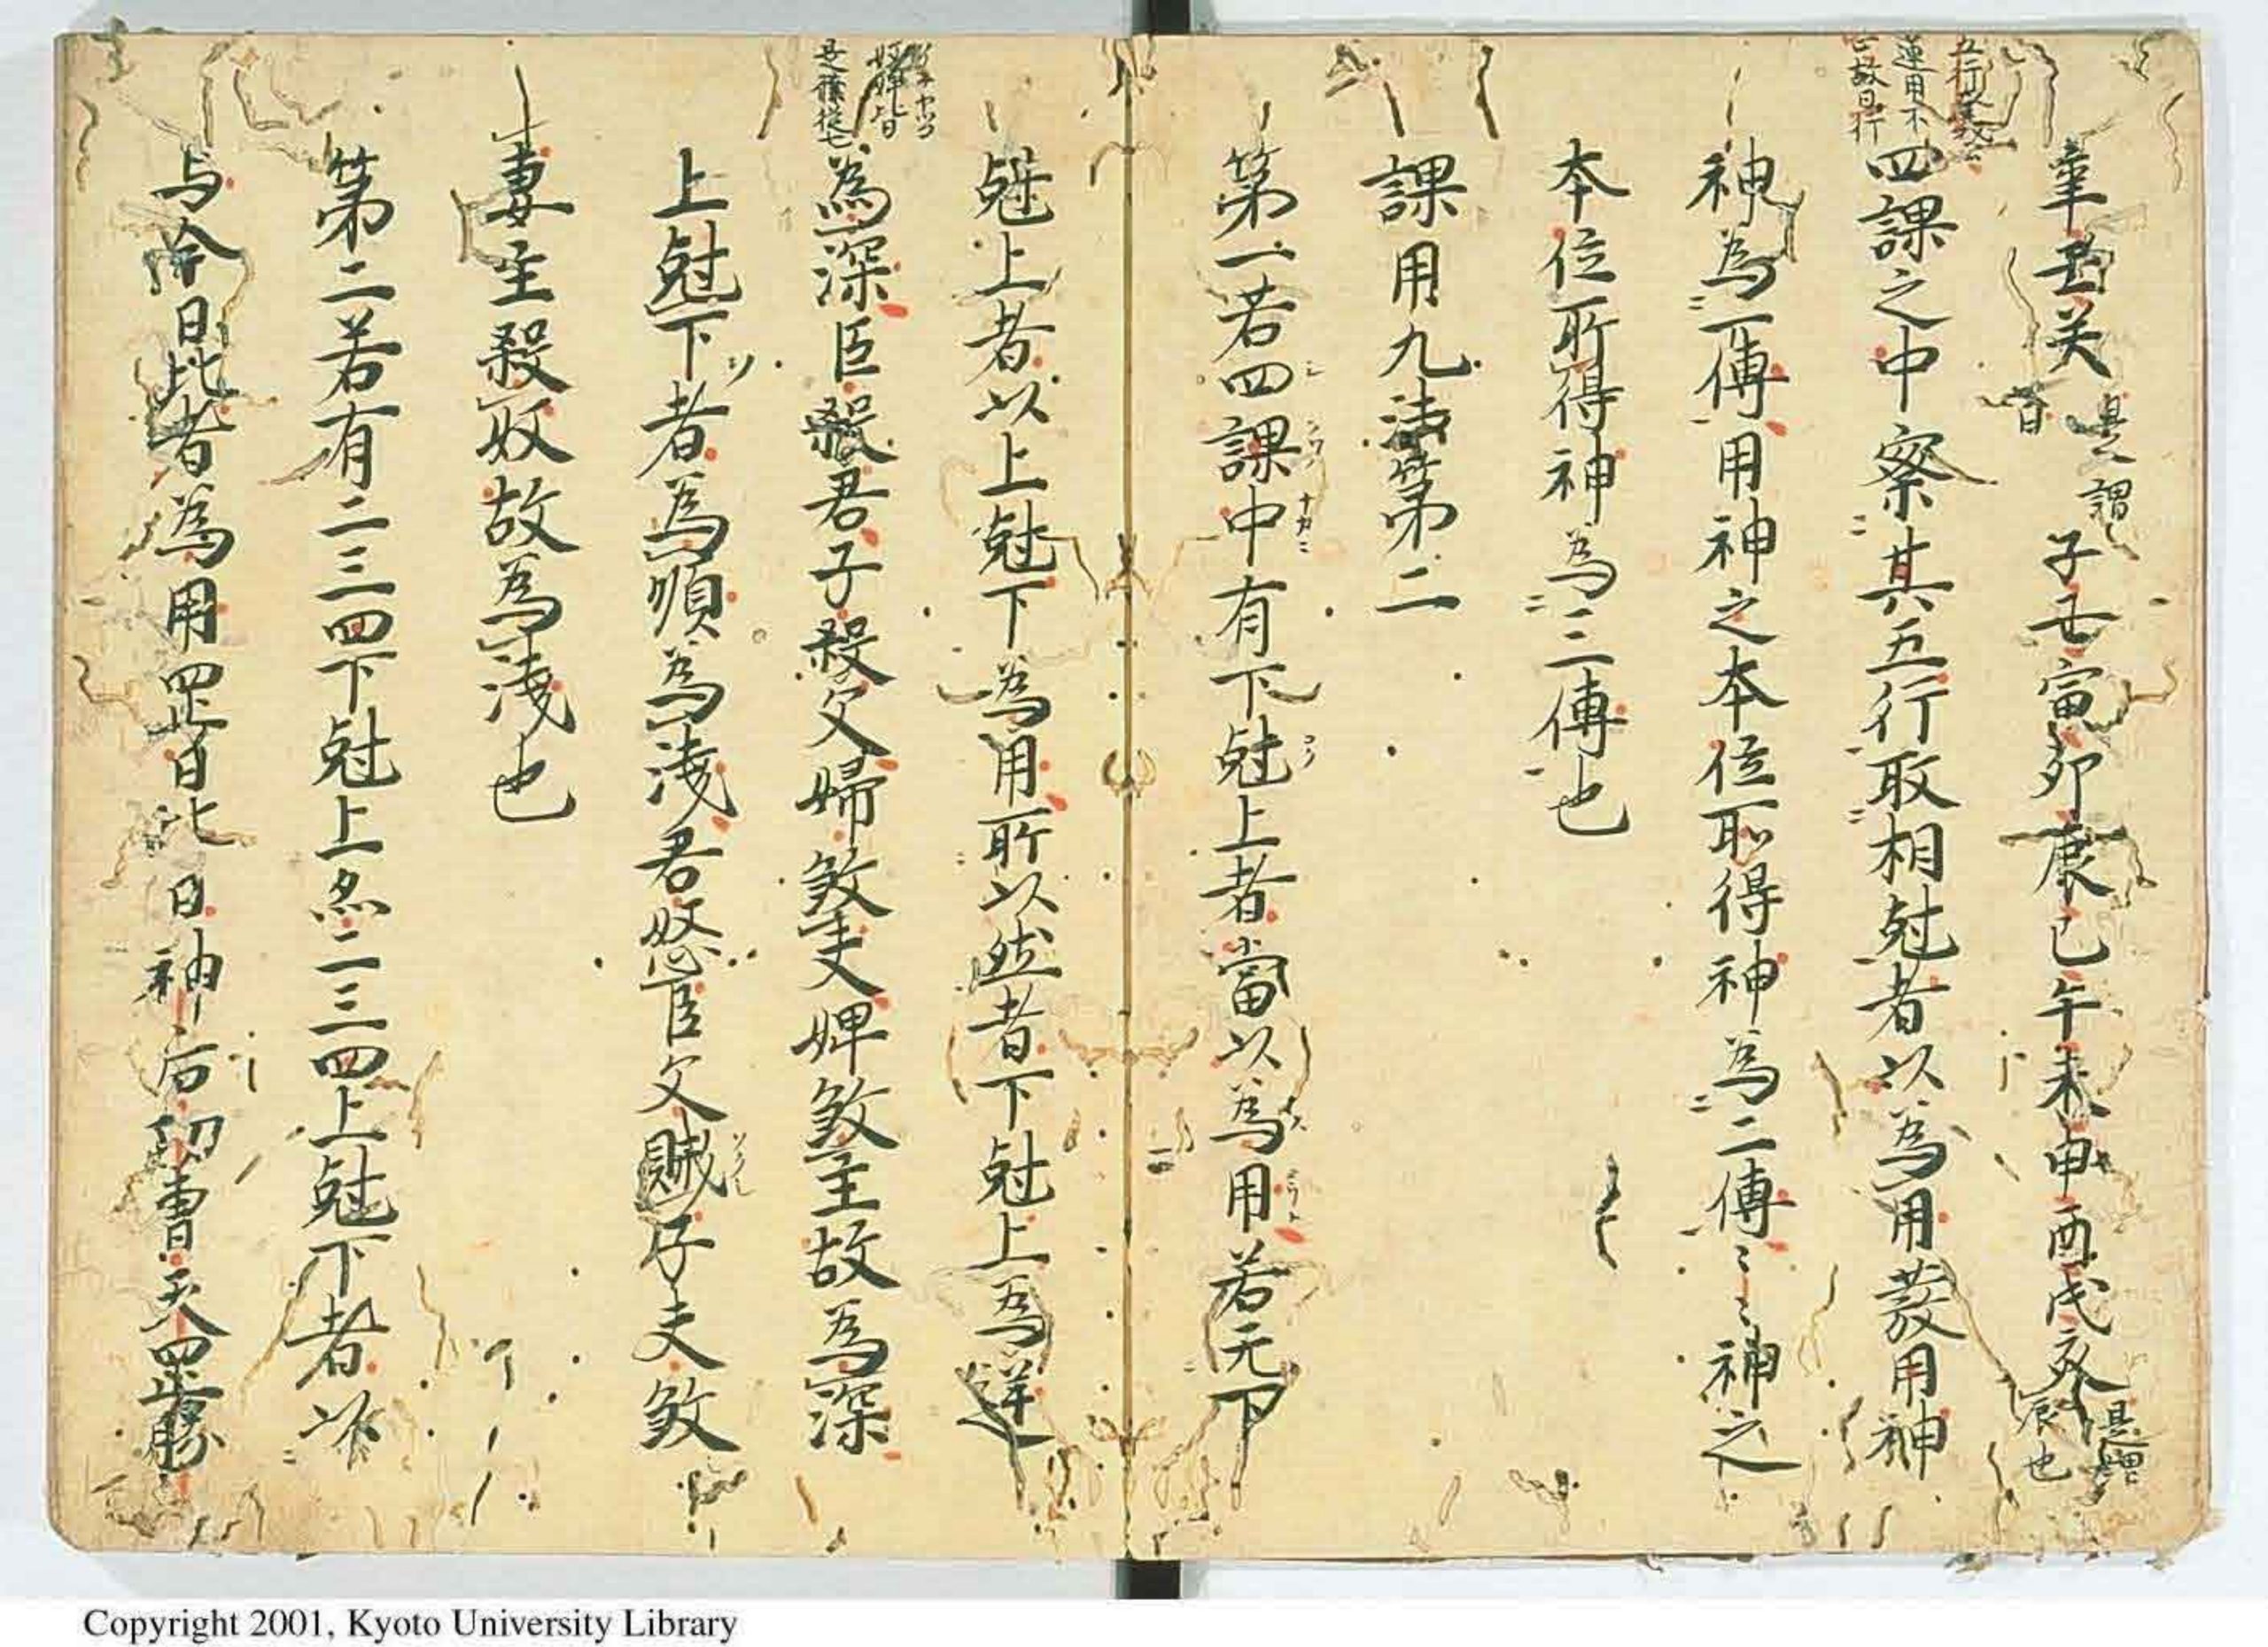 五行
運用不
亡故曰行
辛壬癸是謂日子丑寅卯辰巳午未申酉戌亥是謂辰也
四課之中察其五行取相尅者以為用發用神
神為一傳用神之本位所得神為二傳〻〻神之
本位所得神為三傳也
課用九法第二
第一若四課中有下尅上者當以為用若无下
尅上者以上尅下為用所以然者下尅上為逆
婢皆
為深臣殺君子殺父婦煞夫婢煞主故為深
上尅下者為順為淺君怒臣父賊子夫煞
妻主殺奴故為淺也
第二若有二三四下尅上及二三四上尅下者以
与今日比者為用罡日比日神后功曹天罡勝
Copyright 2001, Kyoto University Library